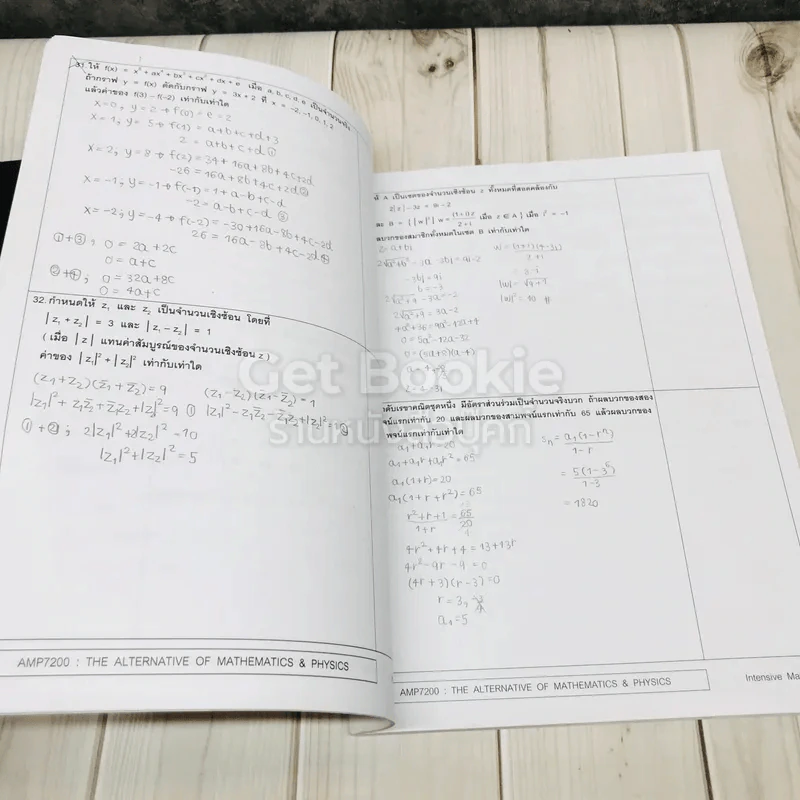 31. ให้ f(x) = x⁵ + ax⁴ + bx³ + cx² + dx + e เมื่อ a, b, c, d, e เป็นจำนวนจริง
ถ้ากราฟ y = f(x) ตัดกับกราฟ y = 3x + 2 ที่ x = -2, -1, 0, 1, 2
แล้วค่าของ f(3) - f(-2) เท่ากับเท่าใด
x=0, y=2 → f(0) = e = 2
x=1, y=5 → f(1) = a+b+c+d+3
2 = a+b+c+d ①
x=2, y=8 → f(2) = 34+16a+8b+4c+2d
-26 = 16a+8b+4c+2d ②
x=-1, y=-1 → f(-1) = 1+a-b+c-d
-2 = a-b+c-d ③
x=-2, y=-4 → f(-2) = -30+16a-8b+4c-2d
26 = 16a-8b+4c-2d ④
①+③; 0 = 2a+2c
0 = a+c
②+④; 0 = 32a+8c
0 = 4a+c
32. กำหนดให้ z₁ และ z₂ เป็นจำนวนเชิงซ้อน โดยที่
|z₁ + z₂| = 3 และ |z₁ - z₂| = 1
(เมื่อ |z| แทนค่าสัมบูรณ์ของจำนวนเชิงซ้อน z)
ค่าของ |z₁|² + |z₂|² เท่ากับเท่าใด
(z₁+z₂)(z̄₁+z̄₂) = 9 (z₁-z₂)(z̄₁-z̄₂) = 1
|z₁|²+z₁z̄₂+z̄₁z₂+|z₂|² = 9 ① |z₁|²-z₁z̄₂-z̄₁z₂+|z₂|² = 1 ②
①+②; 2|z₁|²+2|z₂|² = 10
|z₁|²+|z₂|² = 5
AMP7200 : THE ALTERNATIVE OF MATHEMATICS & PHYSICS
A เป็นเซตของจำนวนเชิงซ้อน z ทั้งหมดที่สอดคล้องกับ
และ B = { |w|² | w = (1+i)z / 2+i เมื่อ z ∈ A } เมื่อ i² = -1
ลบวกของสมาชิกทั้งหมดในเซต B เท่ากับเท่าใด
z = a+bi
-3bi = 9i
b = -3
2√a²+9 = 3a-2
4a²+36 = 9a²-12a+4
0 = 5a²-12a-32
0 = (5a+8)(a-4)
|w|² = 10
Get Bookie
ร้านหนังสือบุ๊คกี้
ำดับเรขาคณิตชุดหนึ่ง มีอัตราส่วนร่วมเป็นจำนวนจริงบวก ถ้าผลบวกของสอง
จน์แรกเท่ากับ 20 และผลบวกของสามพจน์แรกเท่ากับ 65 แล้วผลบวกของ
พจน์แรกเท่ากับเท่าใด
a₁+a₁r = 20 Sₙ = a₁(1-rⁿ) / 1-r
a₁+a₁r+a₁r² = 65
a₁(1+r) = 20 = 5(1-3⁶) / 1-3
a₁(1+r+r²) = 65 = 1820
r²+r+1 / 1+r = 65 / 20
4r²+4r+4 = 13+13r
4r²-9r-9 = 0
(4r+3)(r-3) = 0
r = 3, -3/4
a₁ = 5
AMP7200 : THE ALTERNATIVE OF MATHEMATICS & PHYSICS
Intensive Ma